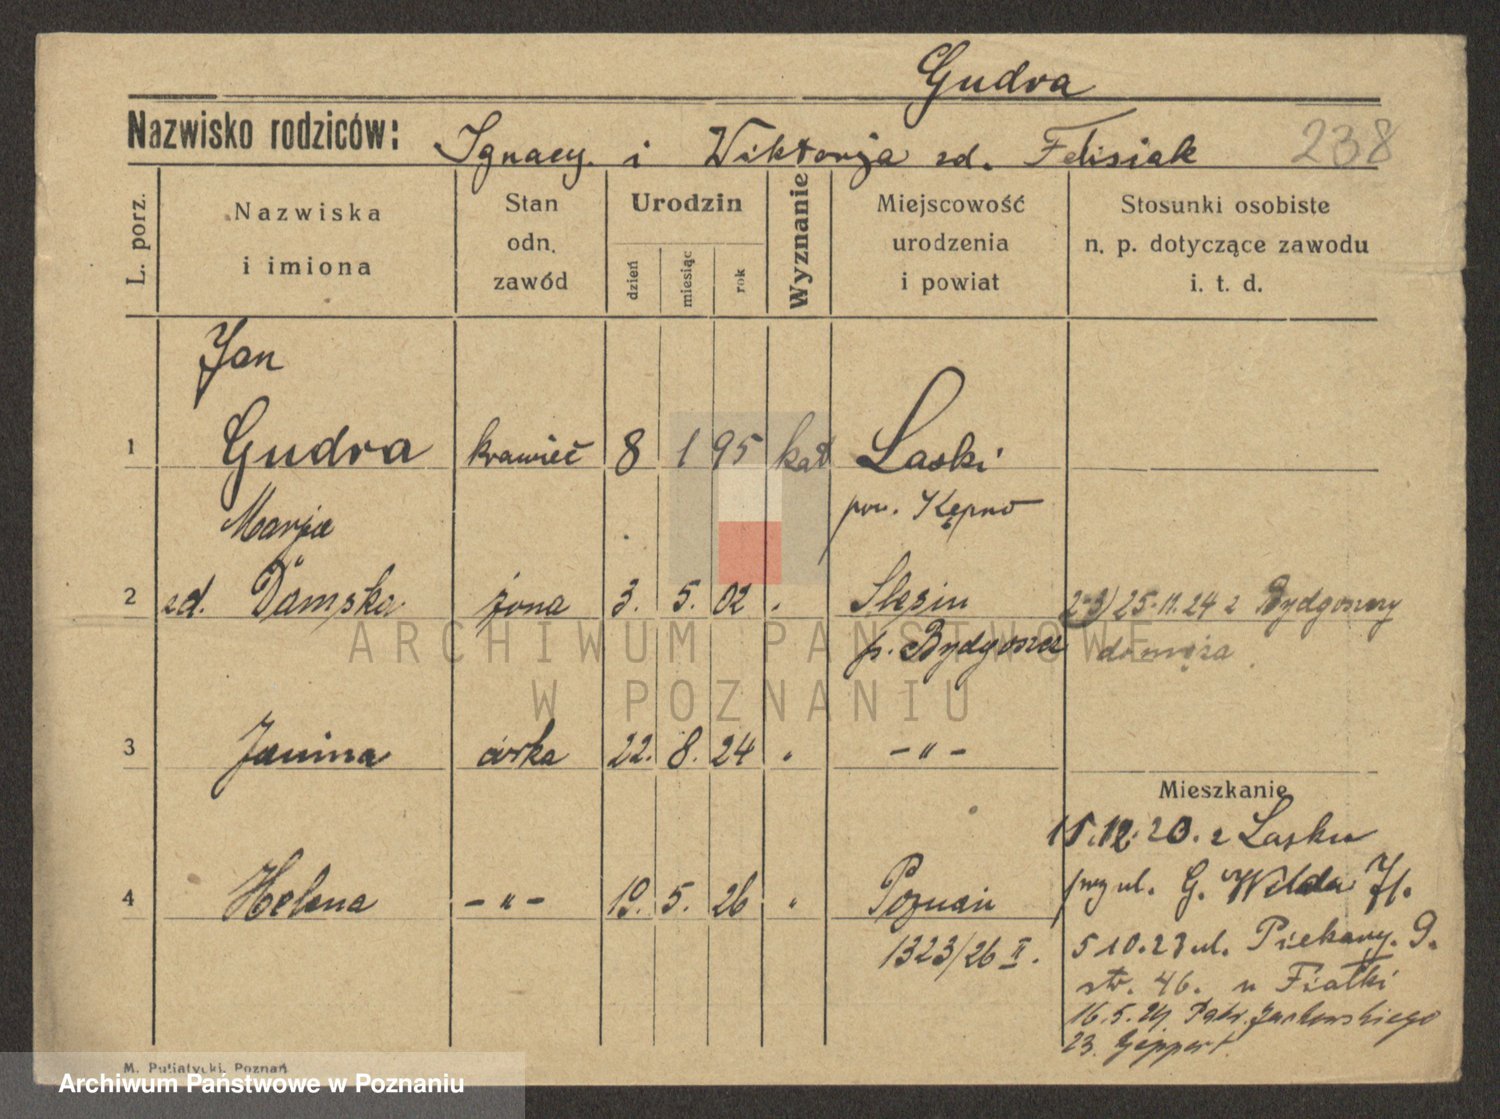 Gudra
Nazwisko rodziców: Ignacy i Wiktorja zd. Felisiak 238
L. porz.
Nazwiska i imiona
Stan odn. zawód
Urodzin
dzień miesiąc rok
Wyznanie
Miejscowość urodzenia i powiat
Stosunki osobiste n. p. dotyczące zawodu i. t. d.
Jan
1 Gudra krawiec 8 1 95 kat Laski
pow. Kępno
Marja
2 zd. Damska żona 3. 5. 02 " Ślesin 2-3) 25.11.24 z Bydgoszczy
p. Bydgoszcz do męża
3 Janina córka 22. 8. 24 " -"-
Mieszkanie
15.12.20. z Lasku
4 Helena -"- 19. 5. 26 " Poznań przy ul. G. Wilda
1323/26 II. 5 10.23 ul. Piekary. 9.
str. 46. u Fiałki
16.5.24 Patr. Jackowskiego
23. Geppert.
M. Putiatycki, Poznań
ARCHIWUM PAŃSTWOWE
W POZNANIU
Archiwum Państwowe w Poznaniu